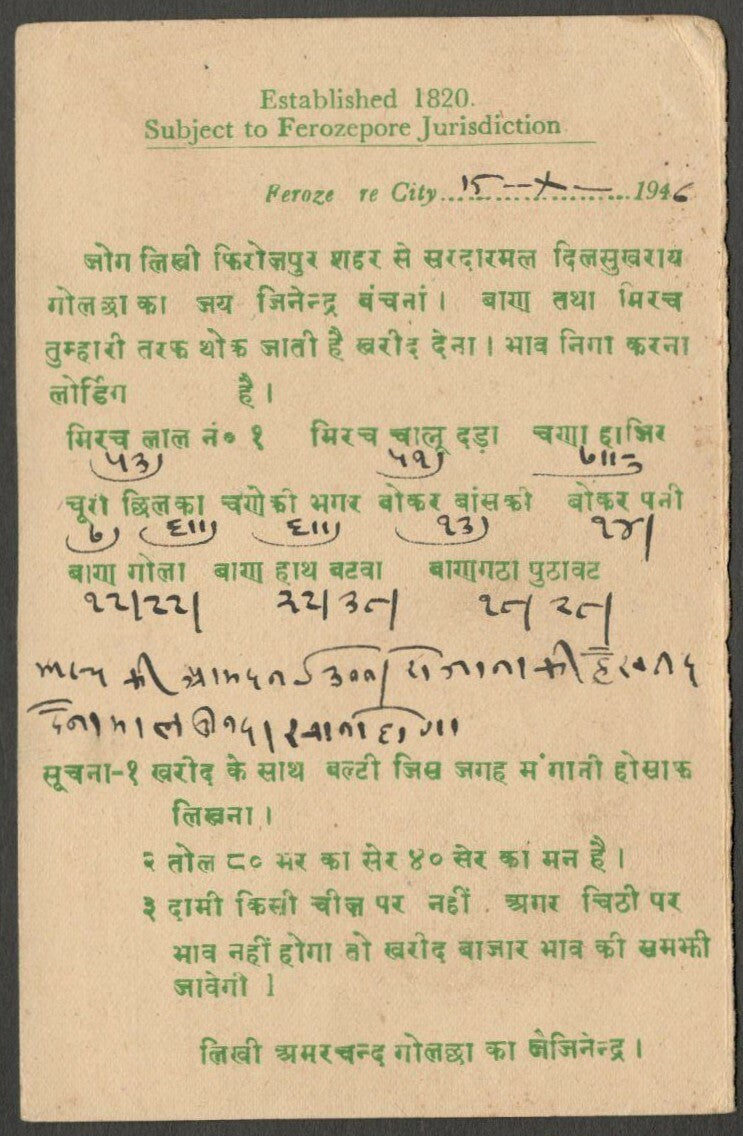 Established 1820.
Subject to Ferozepore Jurisdiction
Feroze re City 15-X- 1946
जोग लिखी फिरोजपुर शहर से सरदारमल दिलसुखराय
गोलछा का जय जिनेन्द्र बंचनां। बाण तथा मिरच
तुम्हारी तरफ थोक जाती है खरीद देना। भाव निगा करना
लोर्डिग है।
मिरच लाल नं० १ मिरच चालू दड़ा चणा हाजिर
५३) ५१)
चूरी छिलका चणेकी भगर बोकर बांसकी बोकर पनी
७) ६॥) ६॥) १३) १४)
बाण गोला बाण हाथ बटवा बाणगठा पुठावट
सूचना-१ खरीद के साथ बल्टी जिस जगह मंगानी होसाफ
लिखना।
२ तोल ८० भर का सेर ४० सेर का मन है।
३ दामी किसी चीज़ पर नहीं अगर चिठी पर
भाव नहीं होगा तो खरीद बाजार भाव की समझी
जावेगी।
लिखी अमरचन्द गोलछा का जैजिनेन्द्र।